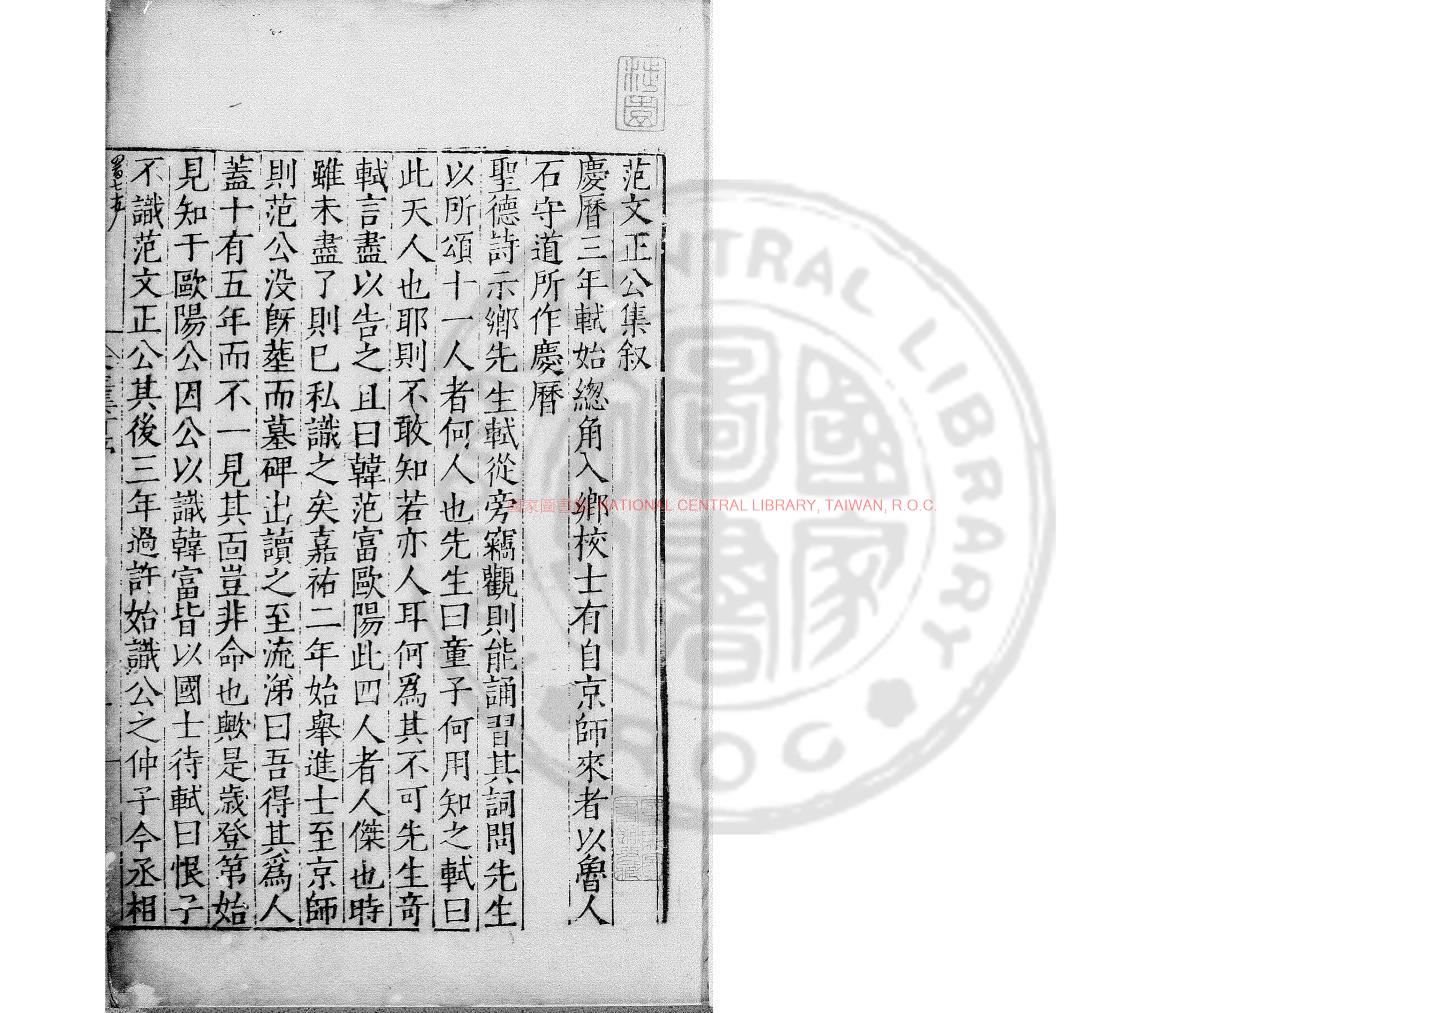 范文正公集叙
慶曆三年軾始緫角入鄉校士有自京師來者以魯人
石守道所作慶曆
聖德詩示鄉先生軾從旁竊觀則能誦習其詞問先生
以所頌十一人者何人也先生曰童子何用知之軾曰
此天人也耶則不敢知若亦人耳何爲其不可先生竒
軾言盡以告之且曰韓范富歐陽此四人者人傑也時
雖未盡了則已私識之矣嘉祐二年始舉進士至京師
則范公没旣塟而墓碑出讀之至流涕曰吾得其爲人
蓋十有五年而不一見其面豈非命也歟是歲登第始
見知于歐陽公因公以識韓富皆以國士待軾曰恨子
不識范文正公其後三年過許始識公之仲子今丞相
國家圖書館 NATIONAL CENTRAL LIBRARY, TAIWAN, R.O.C.
CENTRAL LIBRARY
ROC